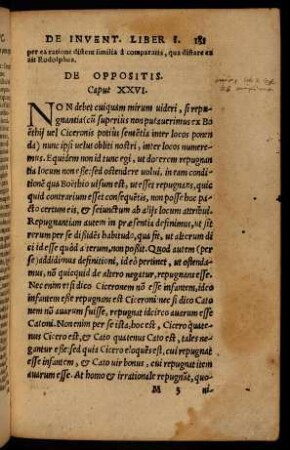 DE INVENT. LIBER I. 181
per ea ratione distent similia à comparatis, qua distare ea
ait Rodolphus.
DE OPPOSITIS.
Caput XXVI.
NON debet cuiquam mirum uideri, si repu-
gnantia (cũ superius non putauerimus ex Bo
ëthij uel Ciceronis potius sentẽtia inter locos ponen
da) nunc ipsi uelut obliti nostri, inter locos numere-
mus. Equidem non id tunc egi, ut docerem repugnan
tia locum non eße: sed ostendere uolui, in eam conditi-
onem qua Boëthio uisum est, ut esset repugnans, quic
quid contrarium esset consequẽtis, non posse hoc pa-
cto certum eis, & seiunctum ab alijs locum attribui.
Repugnantiam autem in præsentia definimus, ut sit
rerum per se dißidẽs habitudo, qua fit, ut alterum di
ci id esse quod a terum, non poßit. Quod autem (per
se) addidimus definitioni, id eò pertinet, ut ostenda-
mus, nõ quicquid de altero negatur, repugnans esse.
Nec enim si quis dico Ciceronem nõ esse infantem, ideo
infantem eße repugnans est Ciceroni: nec si dico Cato
nem nõ auarum fuisse, repugnat idcirco auarum esse
Catoni. Non enim per se ista, hoc est, Cicero quate-
nus Cicero est, & Cato quatenus Cato est, tales ne-
gantur eße: sed quia Cicero eloquẽs est, cui repugnat
esse infantem, & Cato uir bonus, cui repugnat item
auarum esse. At homo & irrationale repugnãt, quo-
M 3 ni-